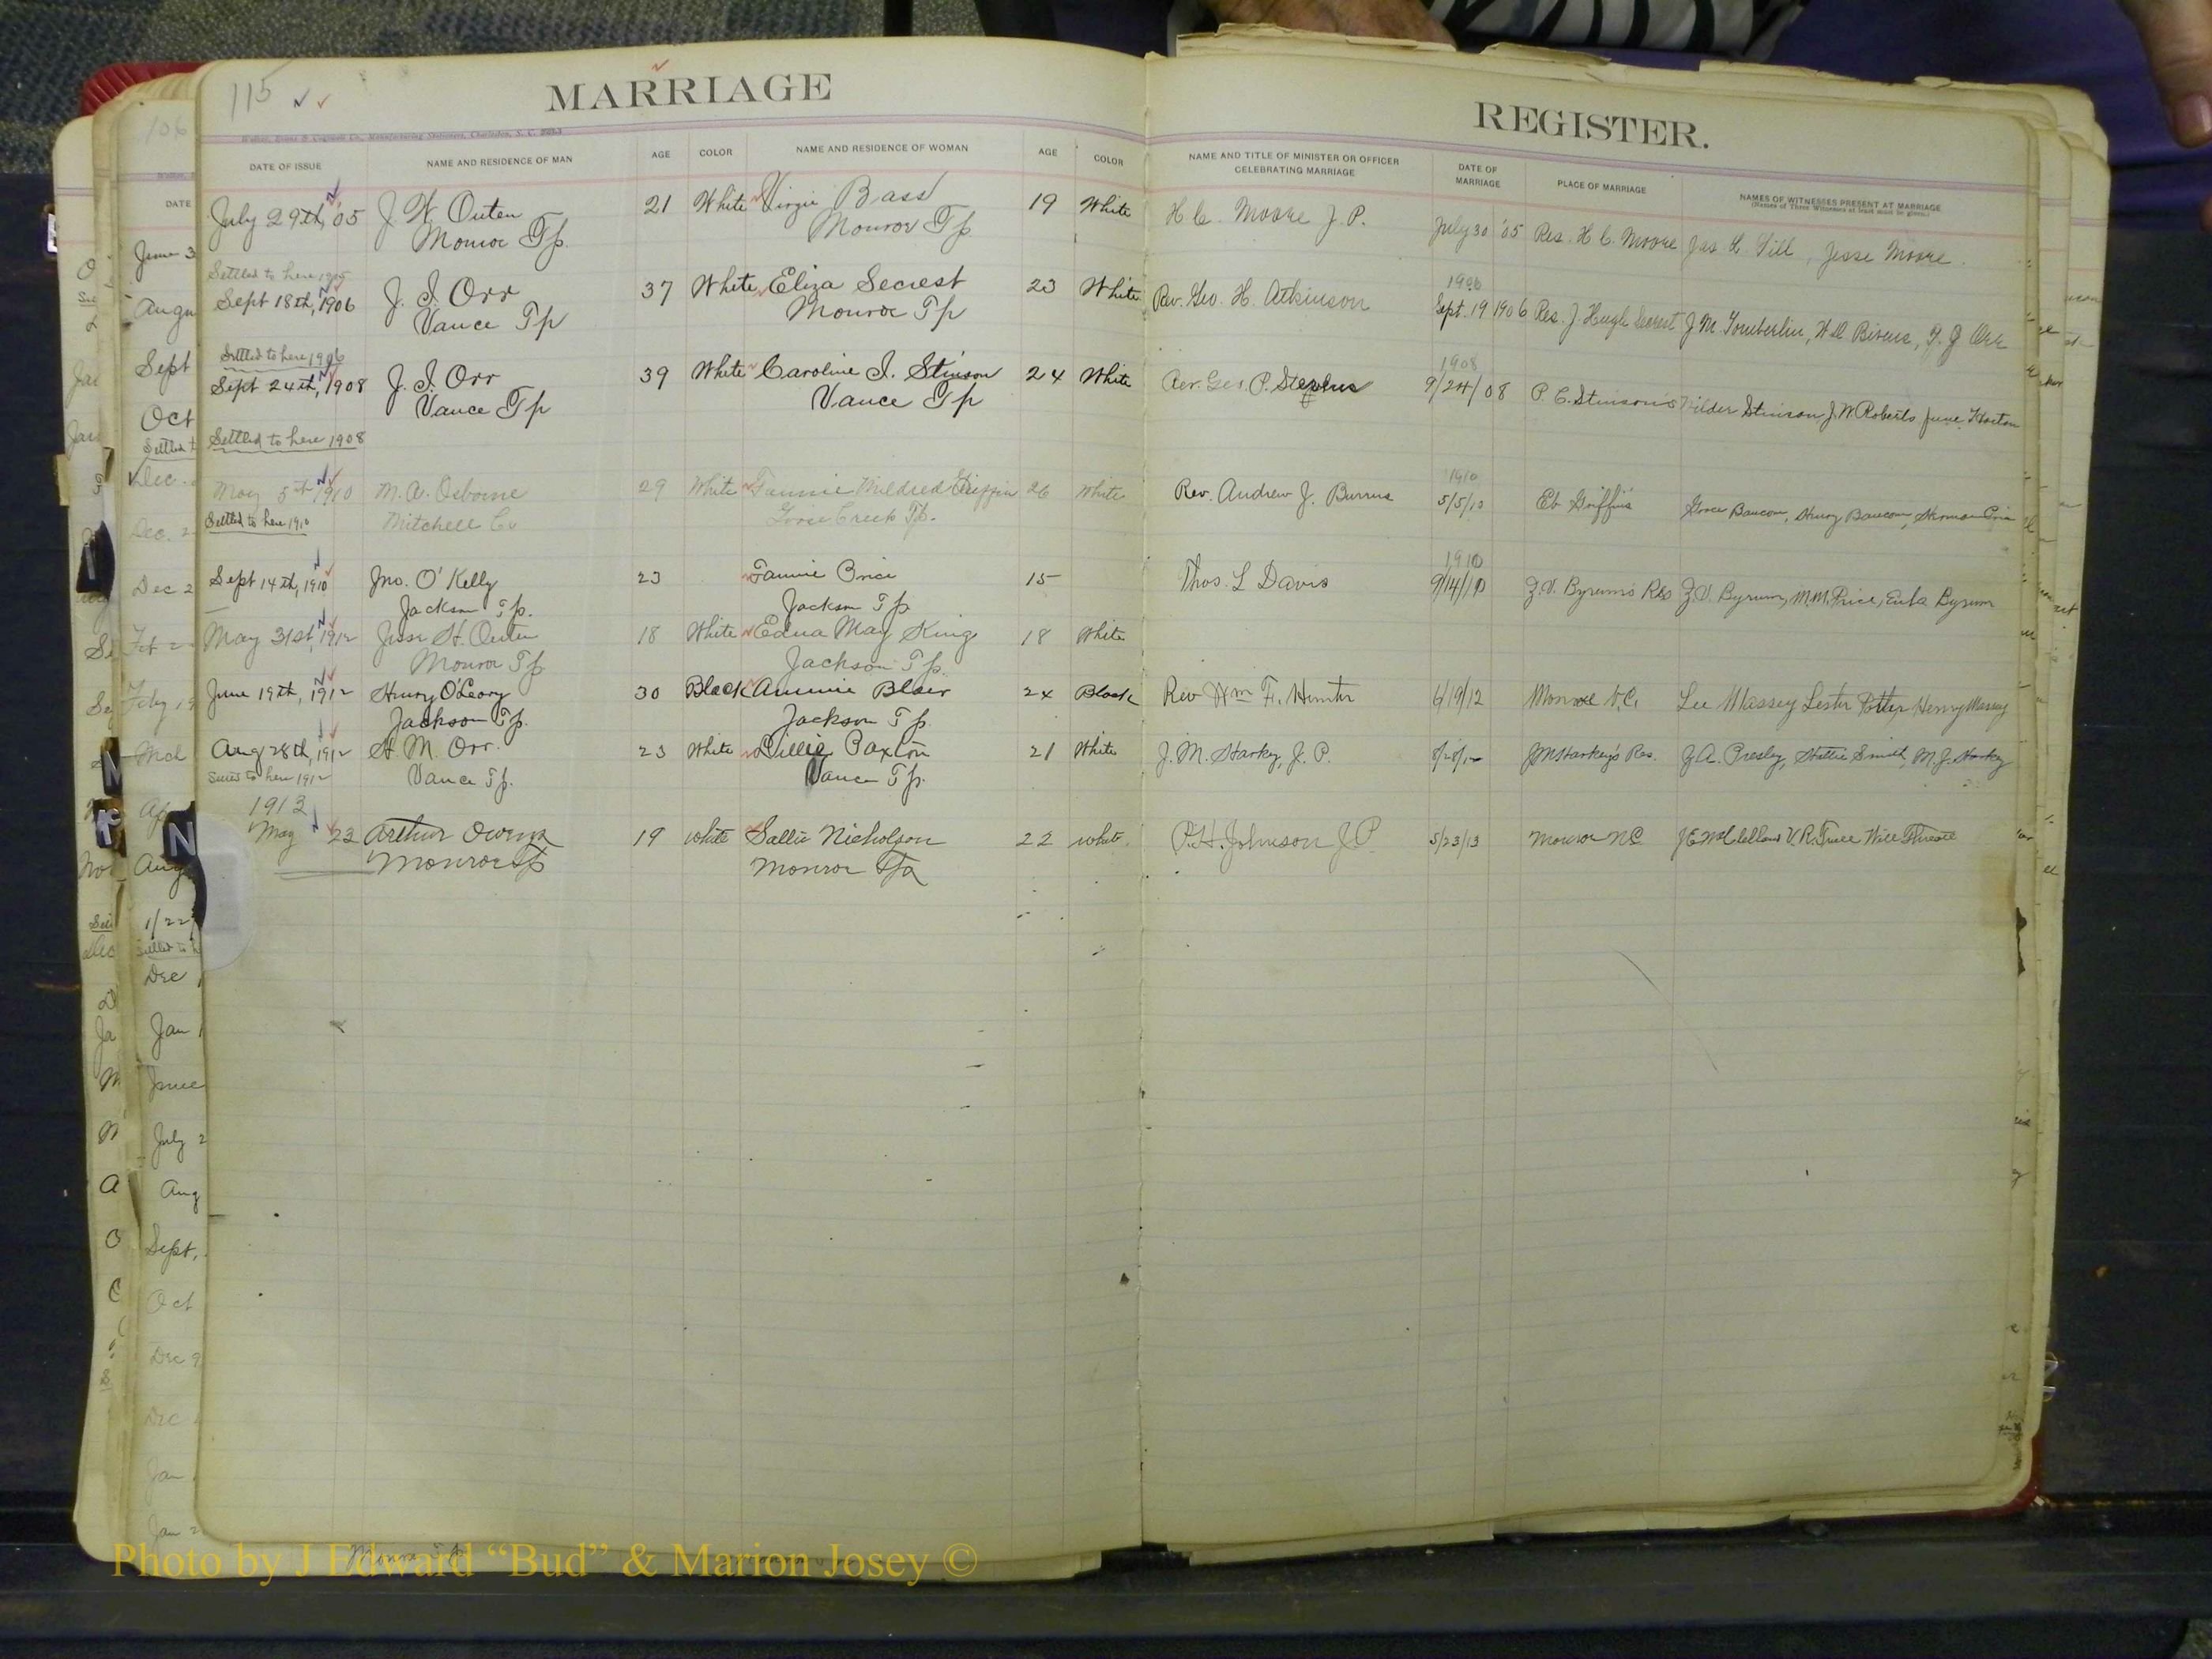 115
MARRIAGE REGISTER.
Walker, Evans & Cogswell Co., Manufacturing Stationers, Charleston, S. C.
DATE OF ISSUE NAME AND RESIDENCE OF MAN AGE COLOR NAME AND RESIDENCE OF WOMAN AGE COLOR NAME AND TITLE OF MINISTER OR OFFICER CELEBRATING MARRIAGE DATE OF MARRIAGE PLACE OF MARRIAGE NAMES OF WITNESSES PRESENT AT MARRIAGE
(Names of Three Witnesses at least must be given.)
July 29th, '05 J W Outen 21 White Virgie Bass 19 White H C. Moore J. P. July 30 '05 Res. H C. Moore Jas. Till, Jesse Moore.
Monroe Tp. Monroe Tp
Settled to here 1905
1906
Sept 18th, 1906 J. I. Orr 37 White Eliza Secrest 23 White Rev. Geo. H. Atkinson Sept. 19 1906 Res. J Hugh Secrest J. M. Tomberlin, Bivens, Orr
Vance Tp Monroe Tp
Settled to here 1906
1908
Sept 24th, 1908 J. I. Orr 39 White Caroline I. Stinson 24 White Rev. Geo. P. 9/24/08 P. C. Stinson's Stinson J. W. Roberts June Horton
Vance Tp Vance Tp
Settled to here 1908
1910
May 5th 1910 M. A. Osborne 29 White Fannie Mildred Griffin 26 White Rev. Andrew J. Burrus 5/5/10 Eb Griffin's Baucom, Henry Baucom,
Settled to here 1910 Mitchell Co Goose Creek Tp.
1910
Sept 14th, 1910 Jno. O'Kelly 23 Fannie Price 15 Thos. L Davis 9/14/10 Z. V. Byrum's Res Z. V. Byrum, M. M. Price, Byrum
Jackson Tp. Jackson Tp
May 31st, 1912 Jesse H. Outen 18 White Edna May King 18 White
Monroe Tp Jackson Tp.
June 19th, 1912 Henry O'Leary 30 Black Annie Blair 24 Black Rev Wm F. Hunter 6/19/12 Monroe N.C. Lee Massey Lester Potter Henry Massey
Jackson Tp. Jackson Tp.
Aug 28th, 1912 H. M. Orr. 23 White Lillie Paxton 21 White J. M. Starkey, J. P. 8/28/12 J M Starkey's Res. Presley, Hattie Smith, M. J. Starkey
Settled to here 1912 Vance Tp. Vance Tp.
1913
May 23 Arthur Owens 19 White Sallie Nicholson 22 White. P. H. Johnson J P. 5/23/13 Monroe NC. J E McClelland V. R. Truell Will Threatt
Monroe Tp Monroe Tp
Photo by J Edward “Bud” & Marion Josey ©